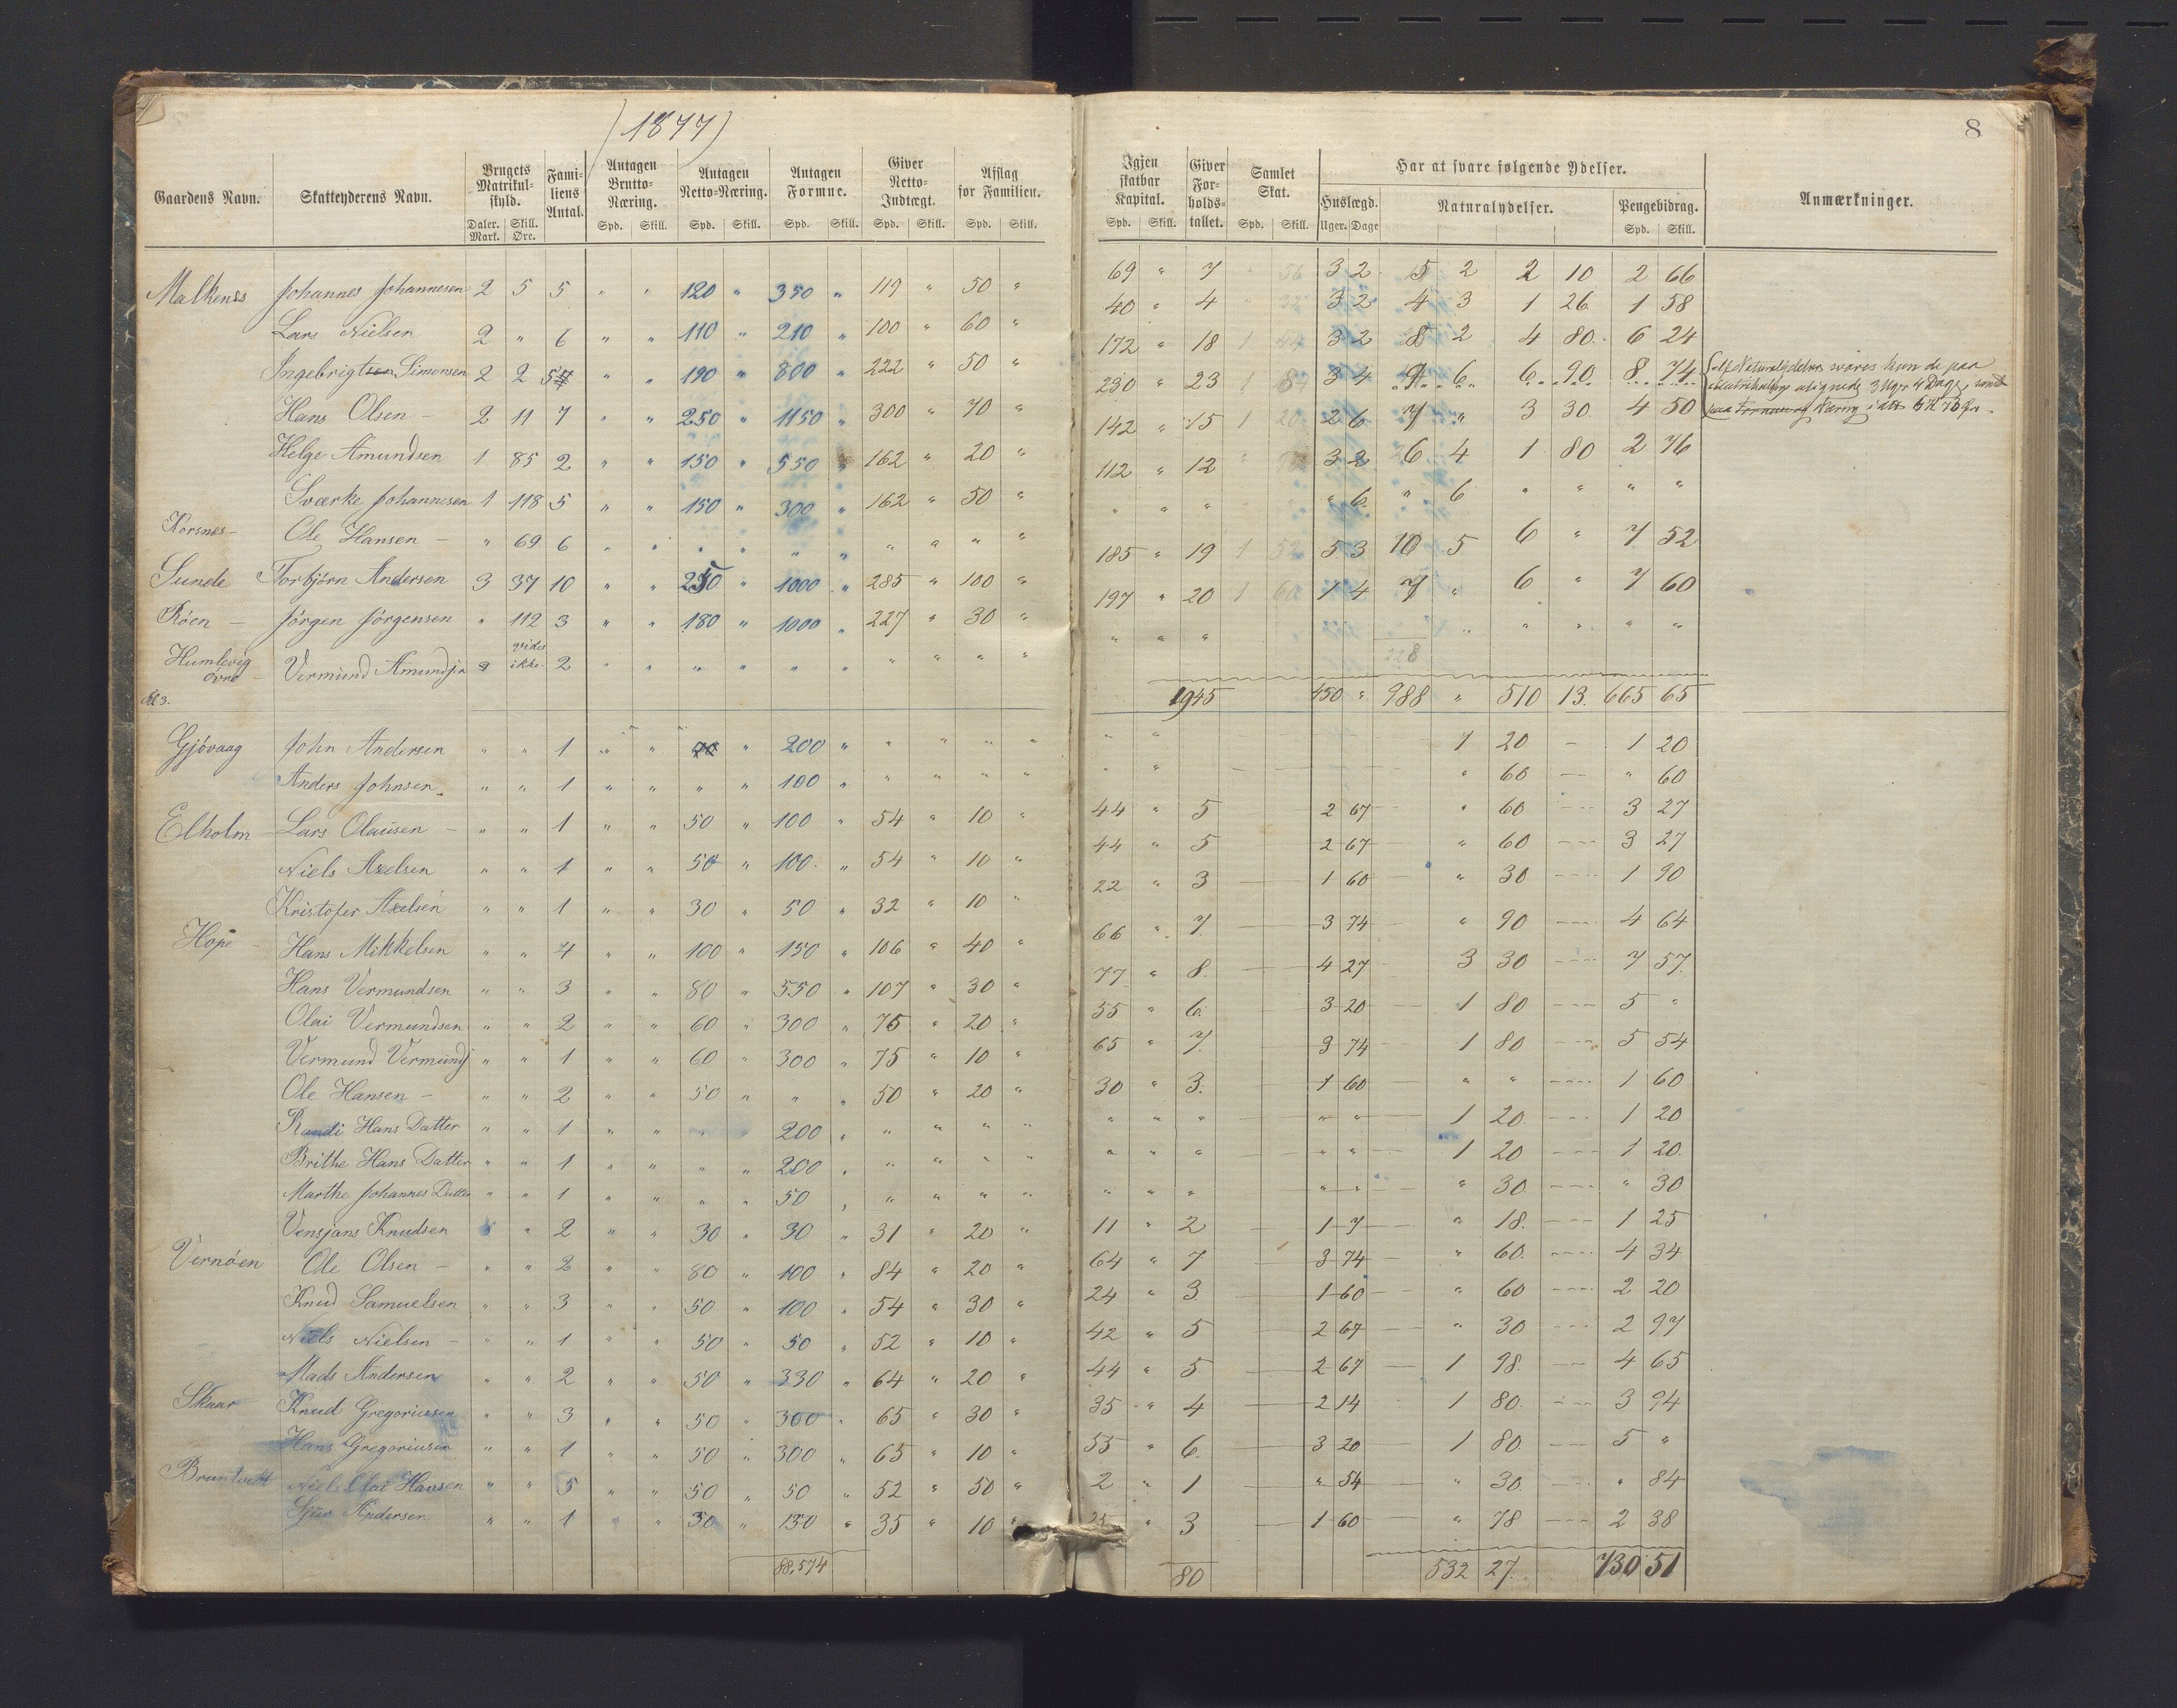 (1877)
8
Gaardens Navn. Skatteyderens Navn. Brugets Matrikul-skyld. Fami-liens Antal. Antagen Brutto-Næring. Antagen Netto-Næring. Antagen Formue. Giver Netto-Indtægt. Afslag for Familien. Igjen skatbar Kapital. Giver For-holds-tallet. Samlet Skat. Har at svare følgende Ydelser. Anmærkninger.
Huslægd. Naturalydelser. Pengebidrag.
Daler. Mark. Skill. Øre. Spd. Skill. Spd. Skill. Spd. Skill. Spd. Skill. Spd. Skill. Spd. Skill. Spd. Skill. Uger. Dage Spd. Skill.
Malkenes Johannes Johannesen 2 5 5 " " 120 " 350 " 119 " 50 " 69 " 7 " 56 3 2 5 2 2 10 2 66
Lars Nielsen 2 " 6 " " 110 " 210 " 100 " 60 " 40 " 4 3 2 4 3 1 26 1 58
Ingebrigtsen Simonsen 2 2 5 " " 190 " 800 " 222 " 50 " 172 " 18 1 44 3 2 8 2 4 80 6 24
Hans Olsen 2 11 7 " " 250 " 1150 " 300 " 70 " 230 " 23 1 84 3 4 9 6 6 90 8 74
Af Naturalydelsen svares kun de paa
3 Uger 4 Dage, samt
paa Formue og Næring
Helge Amundsen 1 85 2 " " 150 " 550 " 162 " 20 " 142 " 15 1 20 2 6 7 " 3 30 4 50
Sværke Johannesen 1 118 5 " " 150 " 300 " 162 " 50 " 112 " 12 " 3 2 6 4 1 80 2 76
Korsnes Ole Hansen " 69 6 " " " " " " " " " " " " " " 6 " 6 " " " "
Sunde Torbjørn Andersen 3 37 10 " " 250 " 1000 " 285 " 100 " 185 " 19 1 52 5 3 10 5 6 " 7 52
Røen Jørgen Jørgensen " 112 3 " " 180 " 1000 " 227 " 30 " 197 " 20 1 60 1 4 7 " 6 " 7 60
Humlevig øvre Vermund Amundsen vides ikke 2 " " " " " " " " " " " " " " " " " "
228
1945 450 " 988 " 510 13 665 65
Kl 3.
Gjøvaag John Andersen " " 1 " " " 200 " " " " " " " 1 20 1 20
Anders Johnsen " " 1 " " " " 100 " " " " " " " " 60 " 60
Elholm Lars Olausen " " 1 " " 50 " 100 " 54 " 10 " 44 " 5 2 67 " 60 3 27
Niels Axelsen " " 1 " " 50 " 100 " 54 " 10 " 44 " 5 2 67 " 60 3 27
Kristofer Axelsen " " 1 " " 30 " 50 " 32 " 10 " 22 " 3 1 60 " 30 1 90
Hope Hans Mikkelsen " " 4 " " 100 " 150 " 106 " 40 " 66 " 7 3 74 " 90 4 64
Hans Vermundsen " " 3 " " 80 " 550 " 107 " 30 " 77 " 8 4 27 3 30 7 57
Olai Vermundsen " " 2 " " 60 " 300 " 75 " 20 " 55 " 6 3 20 1 80 5 "
Vermund Vermunds " " 1 " " 60 " 300 " 75 " 10 " 65 " 7 3 74 1 80 5 54
Ole Hansen " " 2 " " 50 " " " 50 " 20 " 30 " 3 1 60 " " 1 60
Randi Hans Datter " " 1 " " " " 200 " " " " " " " " " " 1 20 1 20
Brithe Hans Datter " " 1 " " " " 200 " " " " " " " " " " 1 20 1 20
Marthe Johannes Datter " " 1 " " " " 50 " " " " " " " " " " " 30 " 30
Vensjans Knudsen " 2 " " 30 " 30 " 31 " 20 " 11 " 2 1 7 " 18 1 25
Vernøen Ole Olsen " " 2 " " 80 " 100 " 84 " 20 " 64 " 7 3 74 " 60 4 34
Knud Samuelsen " " 3 " " 50 " 100 " 54 " 30 " 24 " 3 1 60 " 60 2 20
Niels Nielsen " " 1 " " 50 " 50 " 52 " 10 " 42 " 5 2 67 " 30 2 97
Mads Andersen " " 2 " " 50 " 330 " 64 " 20 " 44 " 5 2 67 1 98 4 65
Skaar Knud Gregoriusen " " 3 " " 50 " 300 " 65 " 30 " 35 " 4 2 14 1 80 3 94
Hans Gregoriusen " " 1 " " 50 " 300 " 65 " 10 " 55 " 6 3 20 1 80 5 "
Bruntvedt Niels Olai Hansen " " 5 " " 50 " 50 " 52 " 50 " 2 " 1 " 54 " 30 " 84
Sjur Andersen " " 1 " " 30 " 130 " 35 " 10 " 25 " 3 1 60 " 78 2 38
88,574 80 532 27 730 51